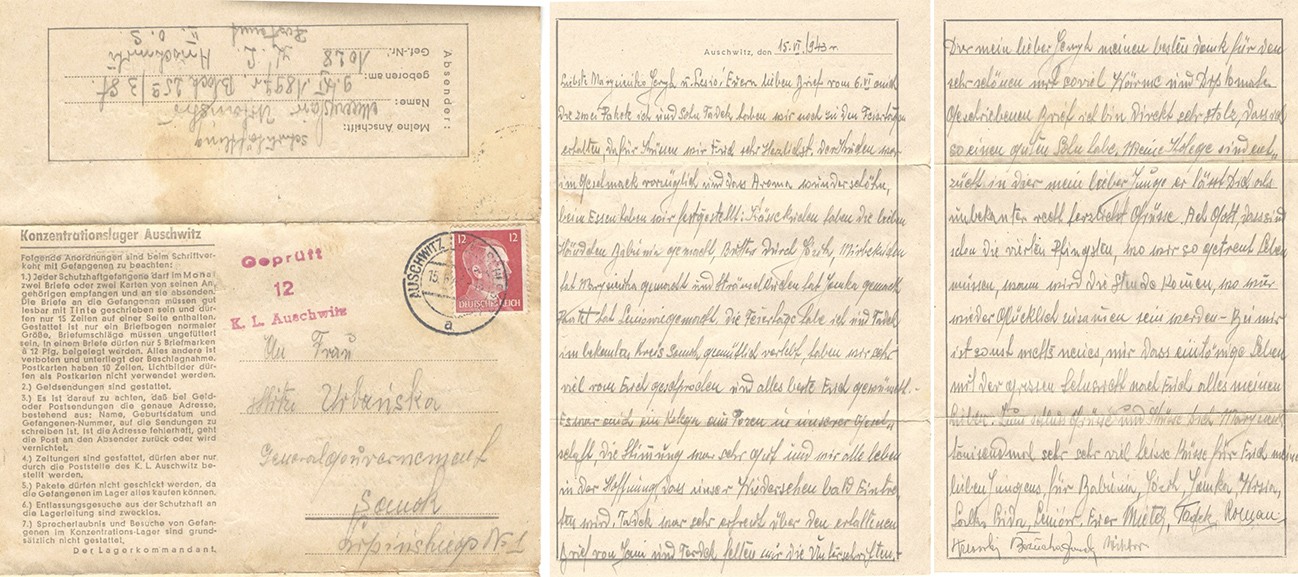 Absender:
Meine Anschrift:
Schutzhäftling
Name: Urbański
geboren am: 1897 Block 25a/3 St
Gef.-Nr.: 1028 K. L. Auschwitz
Postamt II. O. S.
Konzentrationslager Auschwitz
Folgende Anordnungen sind beim Schriftver-
kehr mit Gefangenen zu beachten:
1.) Jeder Schutzhaftgefangene darf im Monat
zwei Briefe oder zwei Karten von seinen An-
gehörigen empfangen und an sie absenden.
Die Briefe an die Gefangenen müssen gut
lesbar mit Tinte geschrieben sein und dür-
fen nur 15 Zeilen auf einer Seite enthalten.
Gestattet ist nur ein Briefbogen normaler
Größe. Briefumschläge müssen ungefüttert
sein. In einem Briefe dürfen nur 5 Briefmarken
à 12 Pfg. beigelegt werden. Alles andere ist
verboten und unterliegt der Beschlagnahme.
Postkarten haben 10 Zeilen. Lichtbilder dür-
fen als Postkarten nicht verwendet werden.
2.) Geldsendungen sind gestattet.
3.) Es ist darauf zu achten, daß bei Geld-
oder Postsendungen die genaue Adresse,
bestehend aus: Name, Geburtsdatum und
Gefangenen-Nummer, auf die Sendungen zu
schreiben ist. Ist die Adresse fehlerhaft, geht
die Post an den Absender zurück oder wird
vernichtet.
4.) Zeitungen sind gestattet, dürfen aber nur
durch die Poststelle des K. L. Auschwitz be-
stellt werden.
5.) Pakete dürfen nicht geschickt werden, da
die Gefangenen im Lager alles kaufen können.
6.) Entlassungsgesuche aus der Schutzhaft an
die Lagerleitung sind zwecklos.
7.) Sprecherlaubnis und Besuche von Gefan-
genen im Konzentrations-Lager sind grund-
sätzlich nicht gestattet.
Der Lagerkommandant.
Geprüft
12
K. L. Auschwitz
AUSCHWITZ
15.
a
12 12
DEUTSCHES REICH
An Frau
Urbańska
Generalgouvernement
Sanok
No 1
Auschwitz, den 15.VI.1943 r.
Liebste u. Lesio! Euern lieben Brief vom 6.VI auch
Die zwei Pakete ich und Sohn Tadek haben wir noch zu den Feiertagen
erhalten, dafür wir Euch sehr Herzlichst. war
im Geschmack vorzüglich und das Aroma wunderschön,
beim Essen haben wir festgestellt: Käsekuchen haben die lieben
Händchen Babunia gemacht, Butter Durch
hat gemacht und hat Janka gemacht
hat gemacht. Die Feiertage habe ich und Tadek
im bekannten Kreis gemütlich verlebt haben wir sehr
viel vom Euch gesprochen und alles beste Euch gewünscht.
Es war auch ein Kolege aus Posen in unserer Gesel-
schaft, die Stimmung war sehr gut und wir alle leben
in der Hoffnung, dass unser Wiedersehen bald Eintre
ten wird. Tadek war sehr erfreut über den erhaltenen
Brief von und fehlen mir die Unterschriften.
Dir mein lieber meinen besten Dank für den
sehr schönen mit soviel Wärme und
Geschriebenen Brief ich bin Direkt sehr stolz, Dass ich
so einen guten Sohn habe. Meine Kolege sind ent„
zückt in Dir mein lieber Junge er lässt Dich als
unbekanter recht herzlich Grüsse. Ach Gott, dass sind
schon die vierten Pfingsten, wo wir so getrent Leben
müssen, wann wird die Stunde komen, wo wir
wieder Glücklich zusamen sein werden – Bei mir
ist sonst nichts neues, nur Dass eintönige Leben
mit der grossen Sehnsucht nach Euch alles meinen
Lieben. Grüsse und küsse Dich
tausendmal sehr sehr viel heisse Küsse für Euch meine
lieben Jungens, für Babunia, Janka, Krysia,
Lida, Euer Mietek, Tadek, Roman